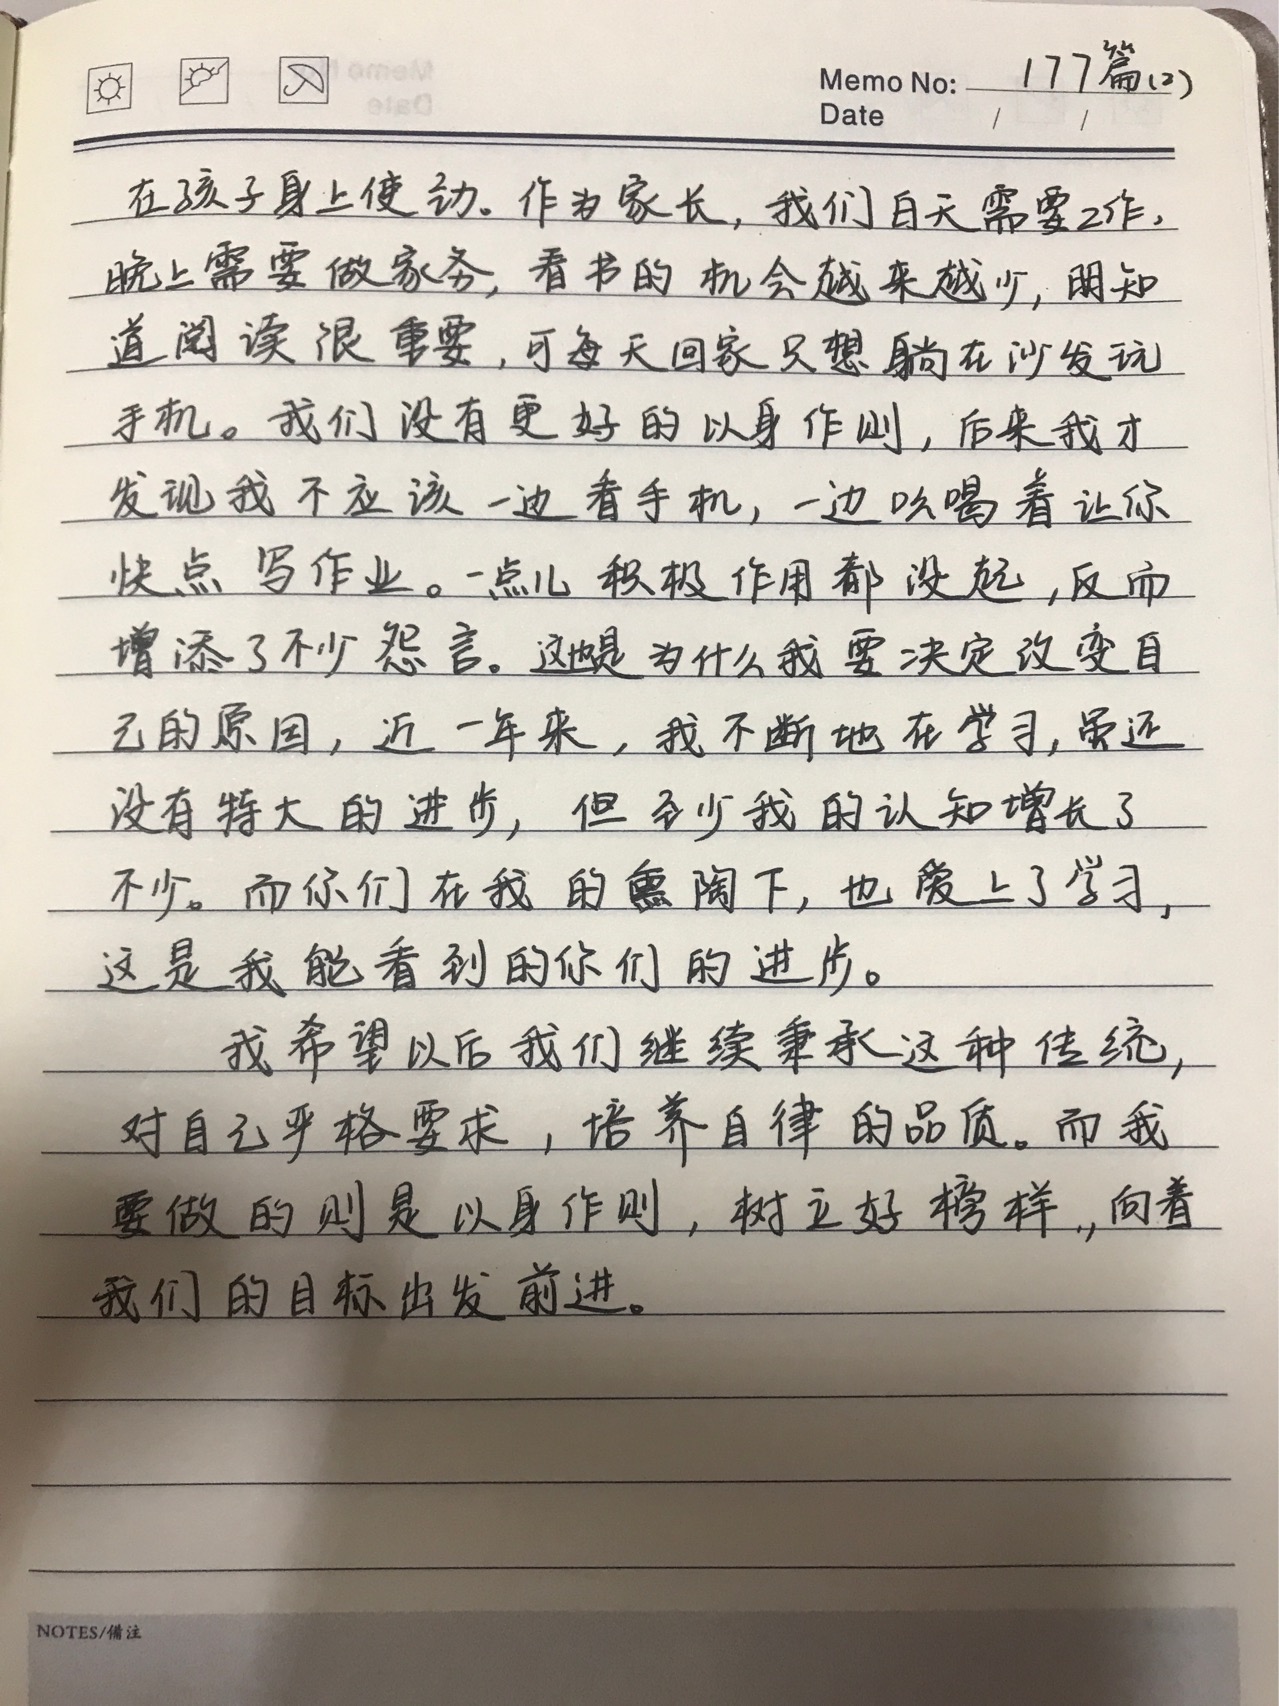 Memo No: 177篇(2)
Date / /
在孩子身上使动。作为家长，我们白天需要工作，
晚上需要做家务，看书的机会越来越少，明知
道阅读很重要，可每天回家只想躺在沙发玩
手机。我们没有更好的以身作则，后来我才
发现我不应该一边看手机，一边吆喝着让你
快点写作业。一点儿积极作用都没起，反而
增添了不少怨言。这也是为什么我要决定改变自
己的原因，近一年来，我不断地在学习，虽还
没有特大的进步，但至少我的认知增长了
不少。而你们在我的熏陶下，也爱上了学习，
这是我能看到的你们的进步。
我希望以后我们继续秉承这种传统，
对自己严格要求，培养自律的品质。而我
要做的则是以身作则，树立好榜样，向着
我们的目标出发前进。
NOTES/備注